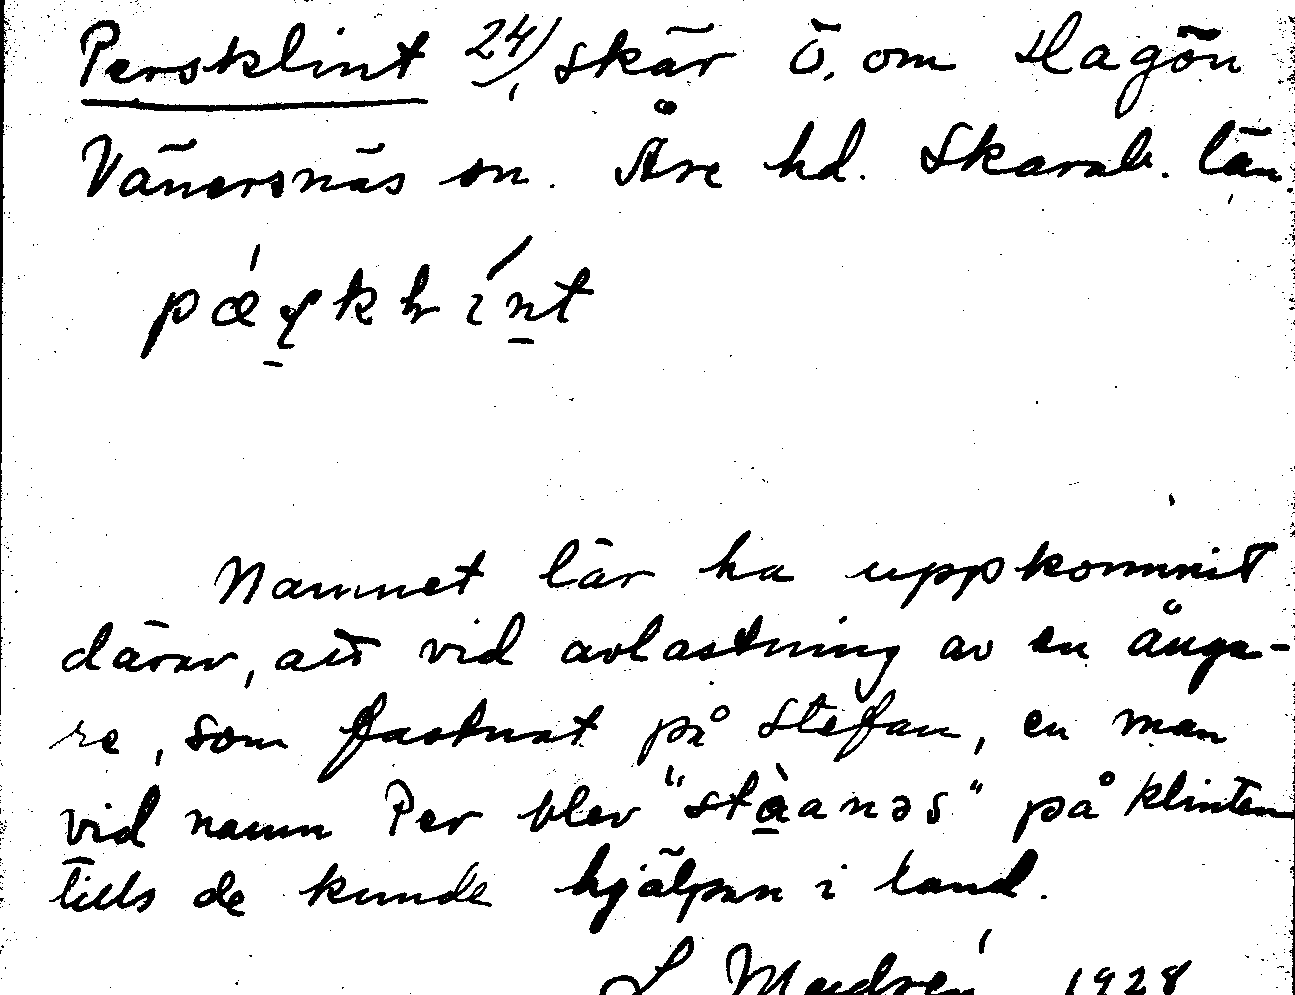 Persklint 24/, skär Ö. om Hagön
Vänersnäs sn. Åse hd. Skarab. län.
Namnet lär ha uppkommit
därav, att vid avlastning av en ånga-
re, som fastnat på Stefan, en man
vid namn Per blev "stàanəs" på klinten
tills de kunde hjälpan i land.
1928